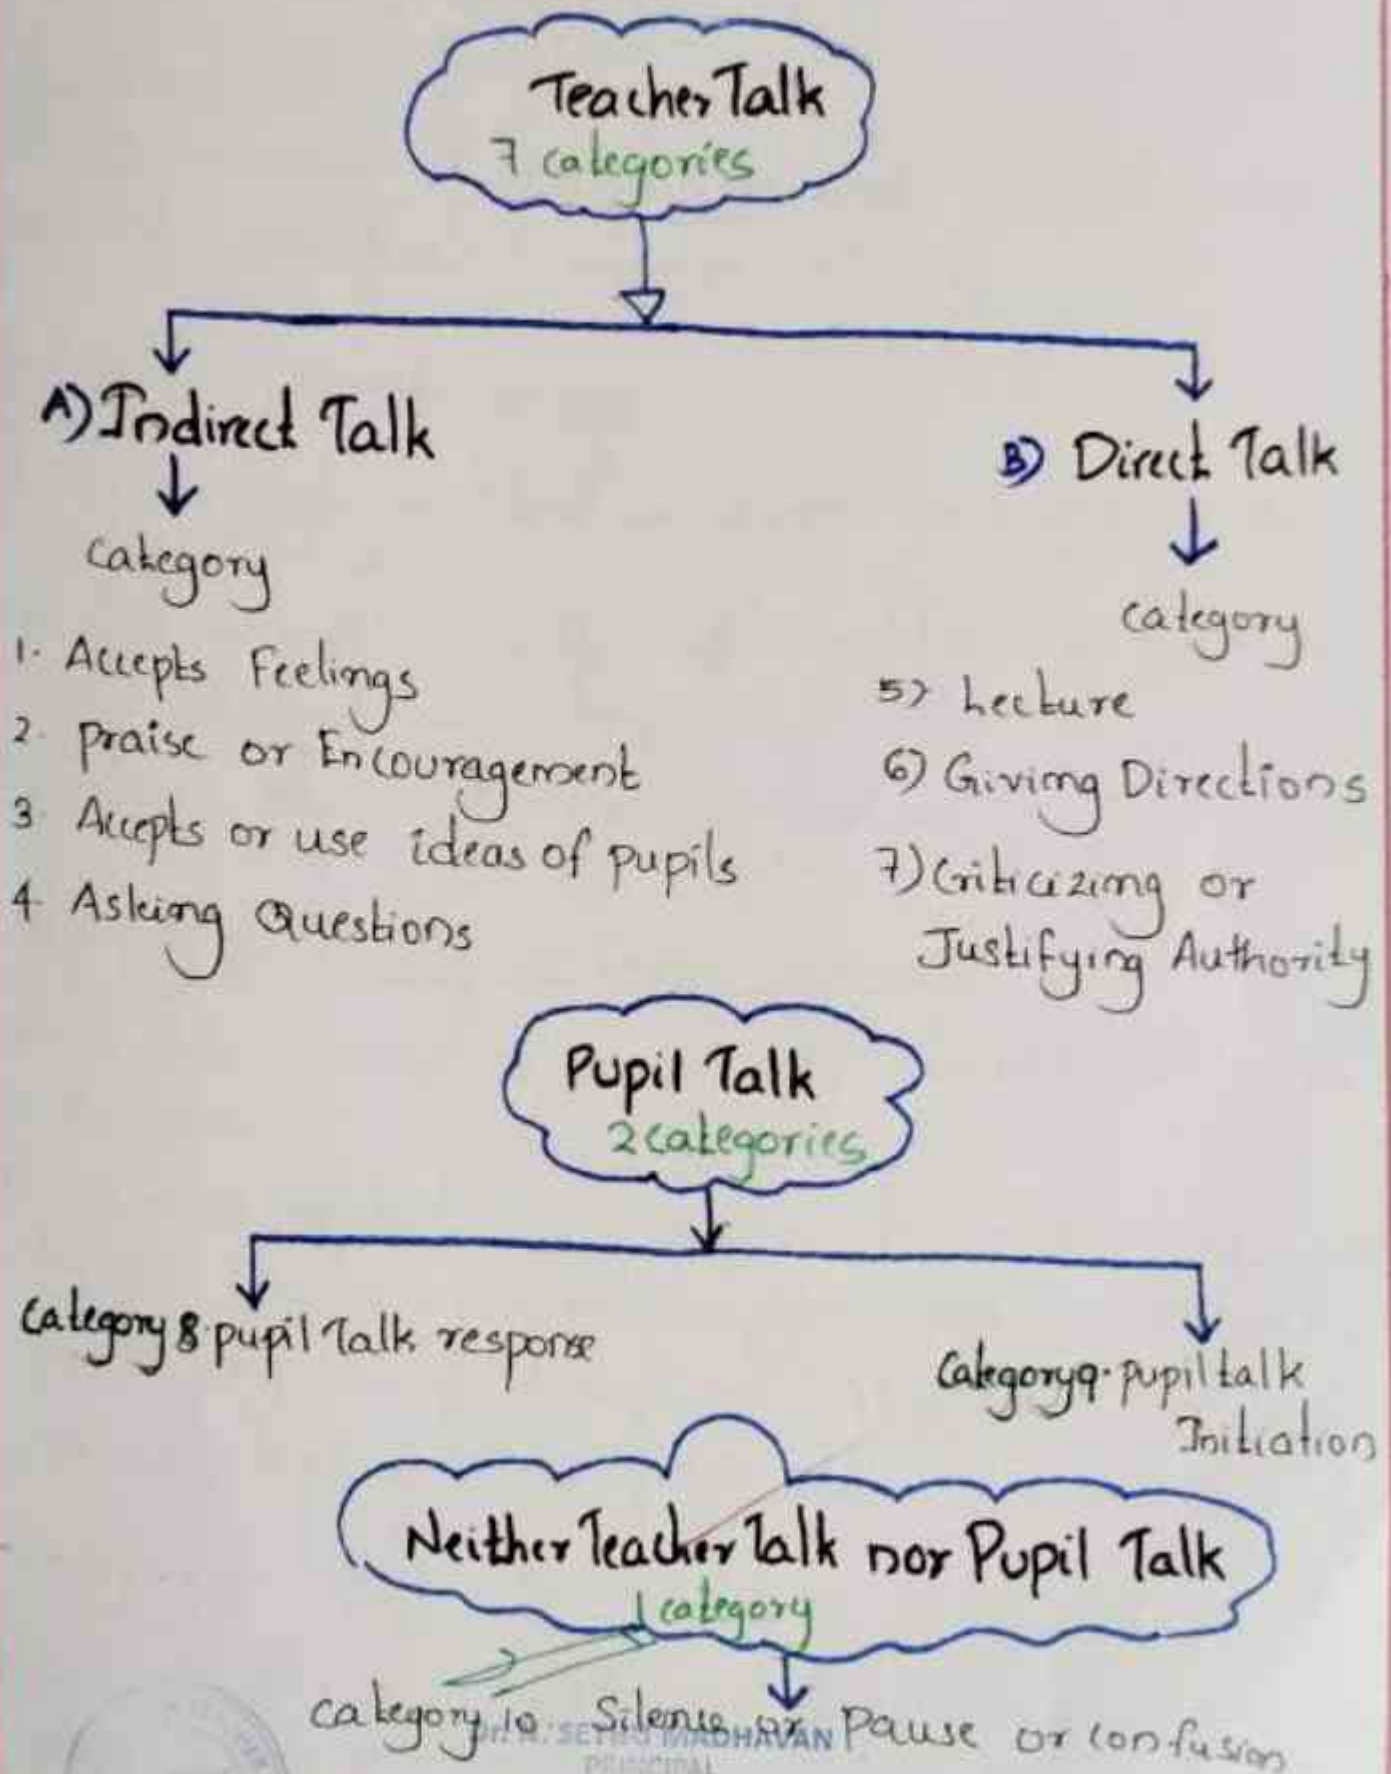 Teacher Talk
7 categories
A) Indirect Talk
B) Direct Talk
category
category
1. Accepts Feelings
2. praise or Encouragement
3 Accepts or use ideas of pupils
4 Asking Questions
5) Lecture
6) Giving Directions
7) Criticizing or
Justifying Authority
Pupil Talk
2 categories
Category 8. pupil Talk response
Category 9. pupil talk
Initiation
Neither Teacher Talk nor Pupil Talk
1 category
category 10 Silense or Pause or confusion
SETHU MADHAVAN
PRINCIPAL